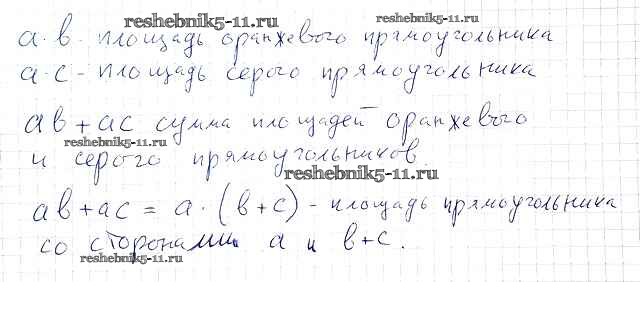 reshebnik5-11.ru
reshebnik5-11.ru
a·b - площадь оранжевого прямоугольника
a·c - площадь серого прямоугольника
ab + ac сумма площадей оранжевого
reshebnik5-11.ru
и серого прямоугольников.
reshebnik5-11.ru
ab+ac = a·(b+c) - площадь прямоугольника
со сторонами a и b+c.
reshebnik5-11.ru